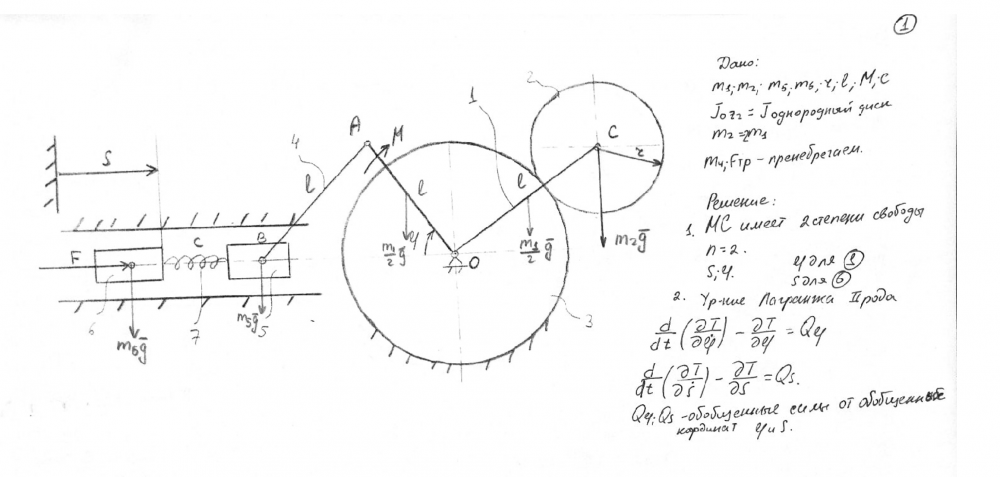 ①
Дано:
m₁; m₂; m₅; m₆; r; l; M; C
Joz₂ = J однородный диск
m₂ = 2m₁
m₄; Fтр - пренебрегаем.
Решение:
1. МС имеет 2 степени свободы
n = 2.
S; φ.
φ для ①
S для ⑥
2. Ур-ние Лагранжа II рода
d/dt (∂T/∂φ̇) - ∂T/∂φ = Qφ
d/dt (∂T/∂ṡ) - ∂T/∂s = Qs.
Qφ; Qs - обобщенные силы от обобщенные
кординат φ и S.
S
4
A
M
l
l
φ
m₁/2 g̅
O
1
l
m₁/2 g̅
2
C
r
m₂g̅
3
F
C
B
6
m₆g̅
7
m₅g̅
5